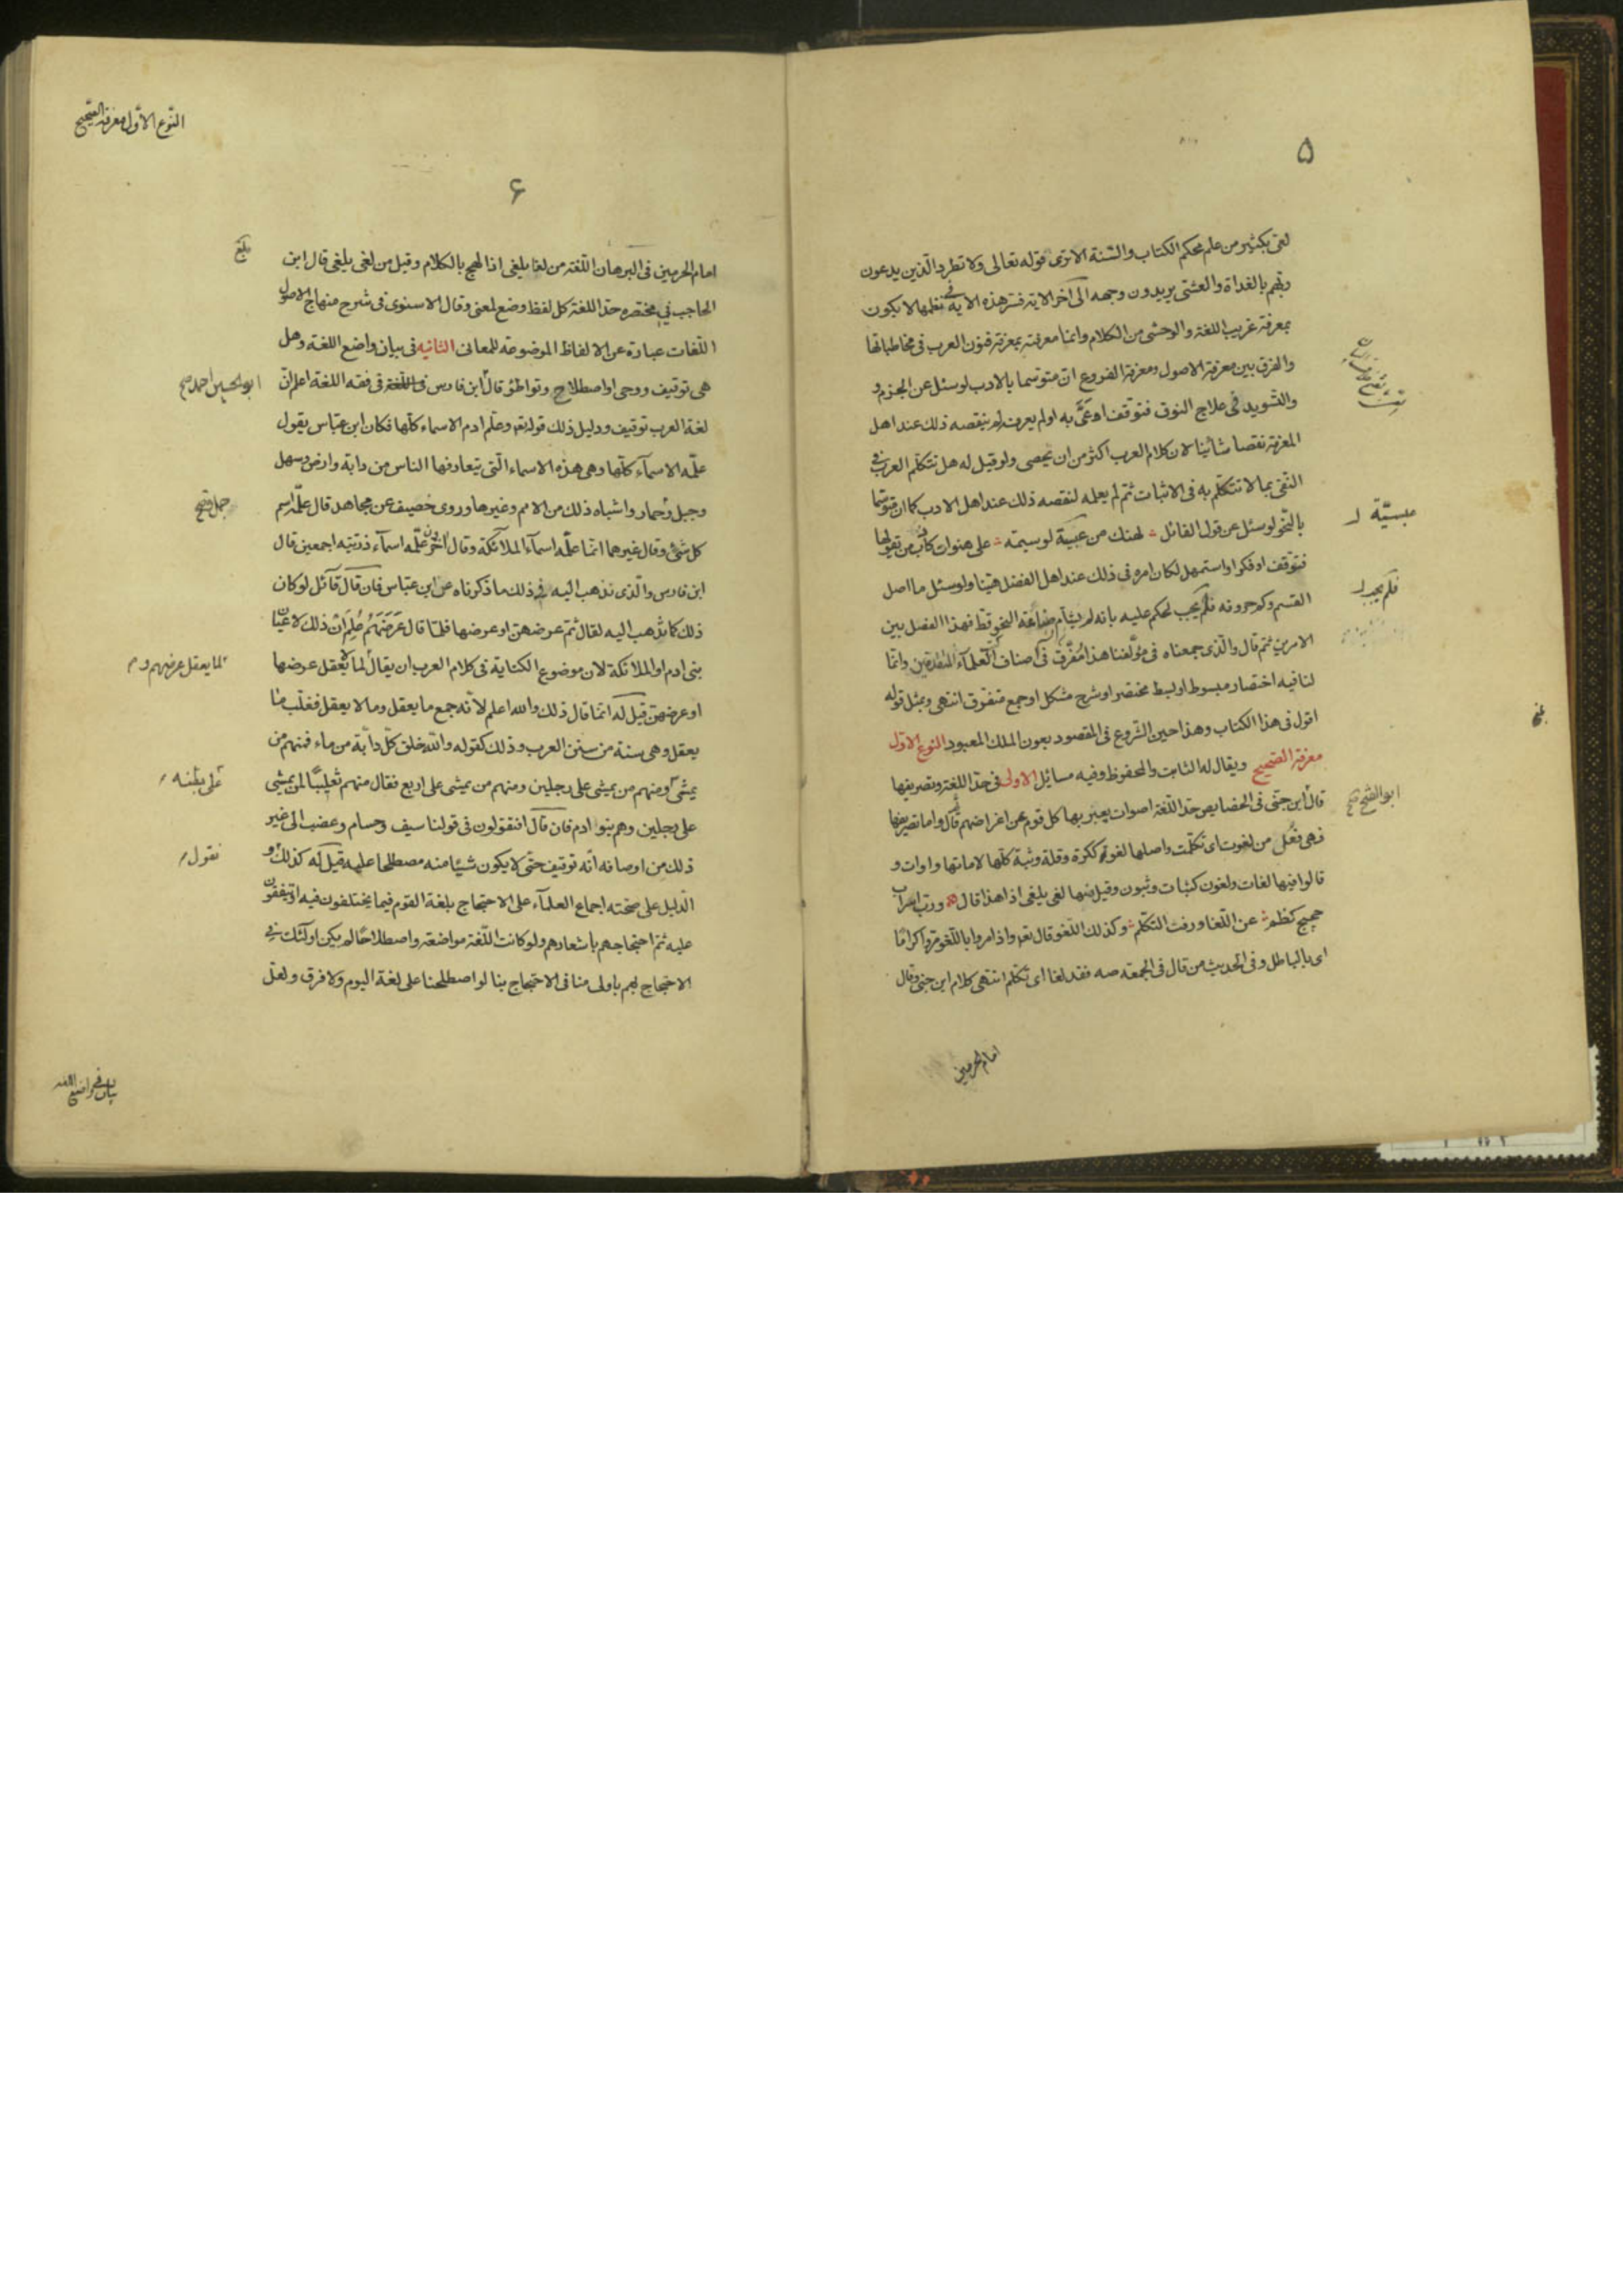 ۵
لعى بكثير من علم محكم الكتاب والسّنة الا ترى قوله تعالى ولا تطرد الّذين يدعون
ربّهم بالغداة والعشى يريدون وجهه الى آخر الاية فسر هذه الاية فى نظمها لا يكون
بمعرفة غريب اللغة والوحشى من الكلام وانما معرفته بمعرفة فنون العرب فى مخاطباتها
والفرق بين معرفة الاصول ومعرفة الفروع ان متوسّما بالادب لوسئل عن الجزم و
والتسويد فى علاج النوق فتوقف او عَىّ به او لم يعرفه لم ينقصه ذلك عند اهل
المعرفة نقصا شائنا لان كلام العرب اكثر من ان يحصى ولو قيل له هل تتكلّم العرب فى
النفى بما لا تتكلّم به فى الاثبات ثم لم يعلمه لنقصه ذلك عند اهل الادب كما ان متوسّما
بالنّحو لو سئل عن قول القائل لهنك من عبسيّة لوسيمة على هنوات كاذب من يقولها
فتوقف او فكر او استمهل لكان امره فى ذلك عند اهل الفضل هيّنا ولو سئل ما اصل
القسم وكم حروفه فلم يجب لحكم عليه بانه لم يشامّ صناعة النحو قط فهذا الفصل بين
الامرين ثم قال والّذى جمعناه فى مؤلّفنا هذا مفرّق فى اصناف العلمآء المتقدمين وانّما
لنا فيه اختصار مبسوط او بسط مختصر او شرح مشكل او جمع متفرق انتهى وبمثل قوله
اقول فى هذا الكتاب وهذا حين الشّروع فى المقصود بعون الملك المعبود النوع الاوّل
معرفة الصّحيح ويقال له الثابت والمحفوظ وفيه مسائل الاولى فى حدّ اللغة وتصريفها
قال ابن جنّى فى الخصايص حدّ اللّغة اصوات يعبّر بها كل قوم عن اغراضهم ثم قال واما تصريفها
فهى فُعلة من لغوت اى تكلّمت واصلها لغوة ككرة وقلة وثبة كلّها لاماتها واوات و
قالوا فيها لغات ولغون كثبات وثبون وقيل منها لغى يلغى اذا هذا قال ورب اسراب
حجيج كظم عن اللّغا ورفث التّكلّم وكذلك اللّغو قال تعـ واذا مروا باللّغو مروا كرامًا
اى بالباطل وفى الحديث من قال فى الجمعة صه فقد لغا اى تكلم انتهى كلام ابن جنى وقال
امام الحرمين
عبسيّة
فلم يجب
ابوالفتح صح
النّوع الاوّل معرفة الصّحيح
۶
امام الحرمين فى البرهان اللّغة من لغا يلغى اذا لهج بالكلام وقيل من لغى يلغى قال ابن
الحاجب فى مختصره حدّ اللغة كل لفظ وضع لمعنى وقال الاسنوى فى شرح منهاج الاصول
اللّغات عبارة عن الالفاظ الموضوعة للمعانى الثانيه فى بيان واضع اللغة وهل
هى توقيف ووحى او اصطلاح وتواطؤ قال ابن فارس فى اللّغة فى فقه اللغة اعلم انّ
لغة العرب توقيف ودليل ذلك قوله تعـ وعلّم ادم الاسماء كلّها فكان ابن عبّاس يقول
علّمه الاسمآء كلّها وهى هذه الاسماء الّتى يتعارفها الناس من دابة وارض وسهل
وجبل وحمار واشباه ذلك من الامم وغيرها وروى خصيف عن مجاهد قال علّمه اسم
كل شئ وقال غيرهما انّما علّمه اسمآء الملائكة وقال اخرون علّمه اسمآء ذرّيّته اجمعين قال
ابن فارس والّذى نذهب اليه فى ذلك ما ذكرناه عن ابن عبّاس فان قال قآئل لو كان
ذلك كما تذهب اليه لقال ثم عرضهنّ او عرضها فلمّا قال عَرَضَهُم عُلِمَ اَنّ ذلك لاعيان
بنى ادم او الملائكة لان موضوع الكناية فى كلام العرب ان يقال لما لا يعقل عرضها
او عرضهنّ قيل له انّما قال ذلك والله اعلم لانّه جمع ما يعقل وما لا يعقل فغلّب ما
يعقل وهى سنة من سنن العرب وذلك كقوله والله خلق كلّ دابّة من ماء فمنهم من
يمشى ومنهم من يمشى على رجلين ومنهم من يمشى على اربع فقال منهم تغليبًا لمن يمشى
على رجلين وهم بنو ادم فان قال افتقولون فى قولنا سيف وحسام وعضب الى غير
ذلك من اوصافه انّه توقيف حتّى لا يكون شيئا منه مصطلحا عليه قيل له كذلك و
الدّليل على صحّته اجماع العلمآء على الاحتجاج بلغة القوم فيما يختلفون فيه او يتفقون
عليه ثمّ احتجاجهم باشعارهم ولو كانت اللّغة مواضعة واصطلاحًا لم يكن اولئك فى
الاحتجاج بهم باولى منا فى الاحتجاج بنا لو اصطلحنا على لغة اليوم ولا فرق ولعلّ
بلغ
ابوالحسين احمد صح
جمل صح
لما يعقل عرضهم و
على بطنه
نقول
بيان فى واضع اللغة